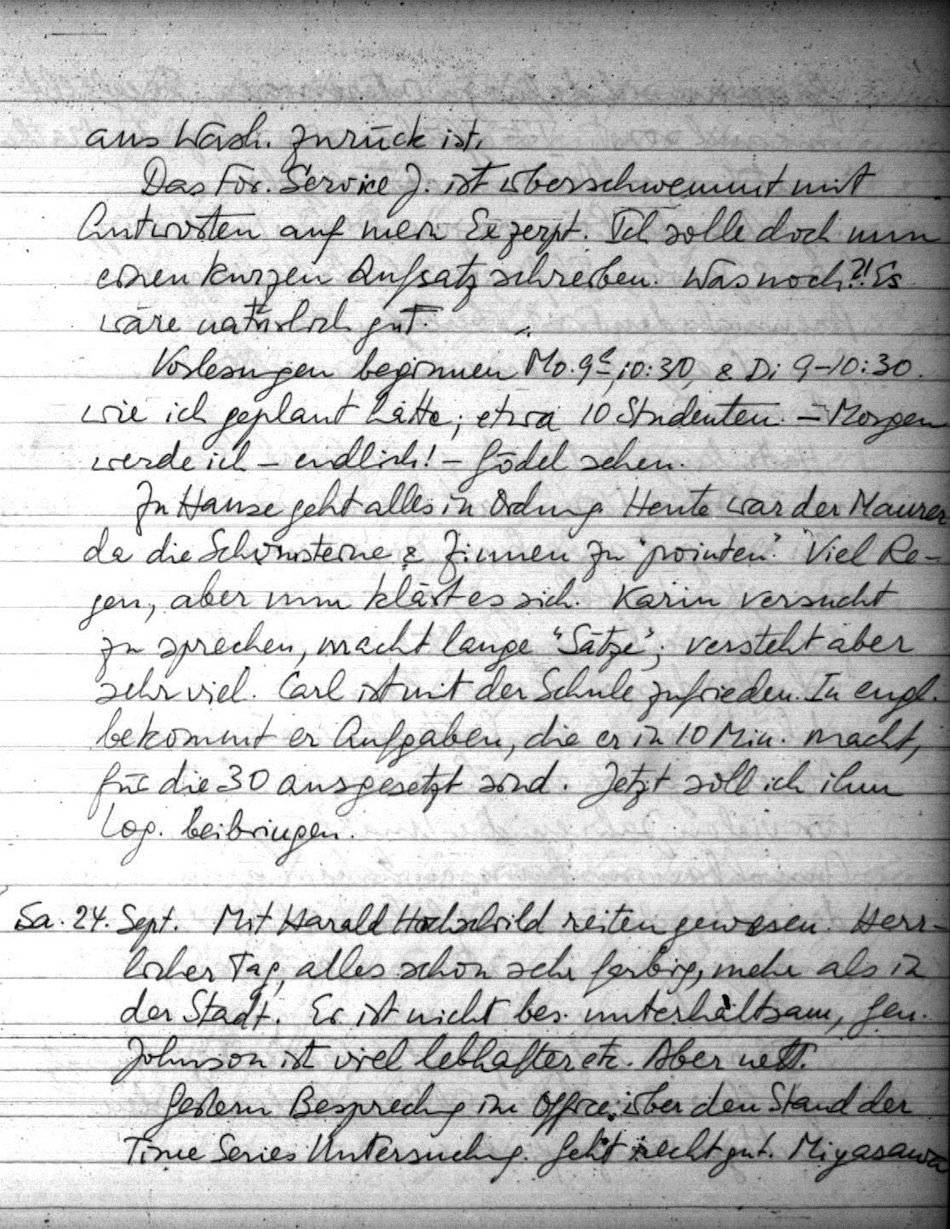 aus Wash. zurück ist.
Das For. Service J. ist überschwemmt mit
Antworten auf mein Exzerpt. Ich solle doch nun
einen kurzen Aufsatz schreiben. Was noch?! Es
wäre natürlich gut.
Vorlesungen beginnen Mo. 9-10:30, & Di 9-10:30.
wie ich geplant hatte; etwa 10 Studenten. – Morgen
werde ich – endlich! – Gödel sehen.
Zu Hause geht alles in Ordnung. Heute war der Maurer
da die Schornsteine & Zinnen zu "pointen". Viel Re-
gen, aber nun klärt es sich. Karin versucht
zu sprechen, macht lange "Sätze"; versteht aber
sehr viel. Carl ist mit der Schule zufrieden. In engl.
bekommt er Aufgaben, die er in 10 Min. macht,
für die 30 ausgesetzt sind. Jetzt soll ich ihm
Log. beibringen.
Sa. 24. Sept. Mit Harald Hochschild reiten gewesen. Herr-
licher Tag, alles schon sehr farbig, mehr als in
der Stadt. Er ist nicht bes. unterhaltsam, Gen.
Johnson ist viel lebhafter etc. Aber nett.
Gestern Besprechg im Office über den Stand der
Time Series Untersuchg. Geht recht gut. Miyasawa